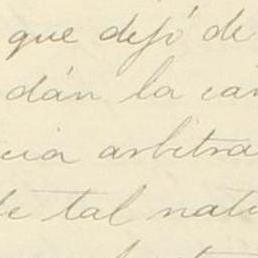 que dejó de
dán la can
cia arbitra
de tal natu